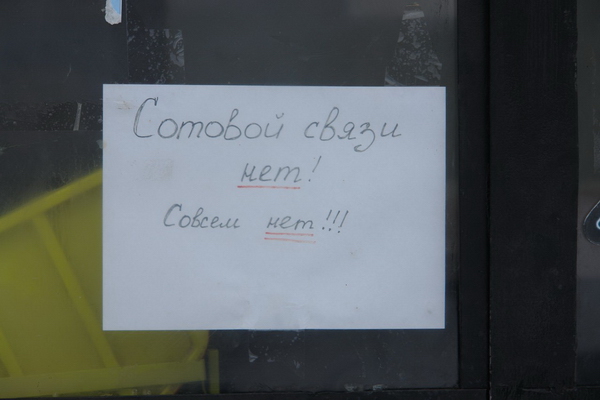 Сотовой связи
нет!
Совсем нет!!!